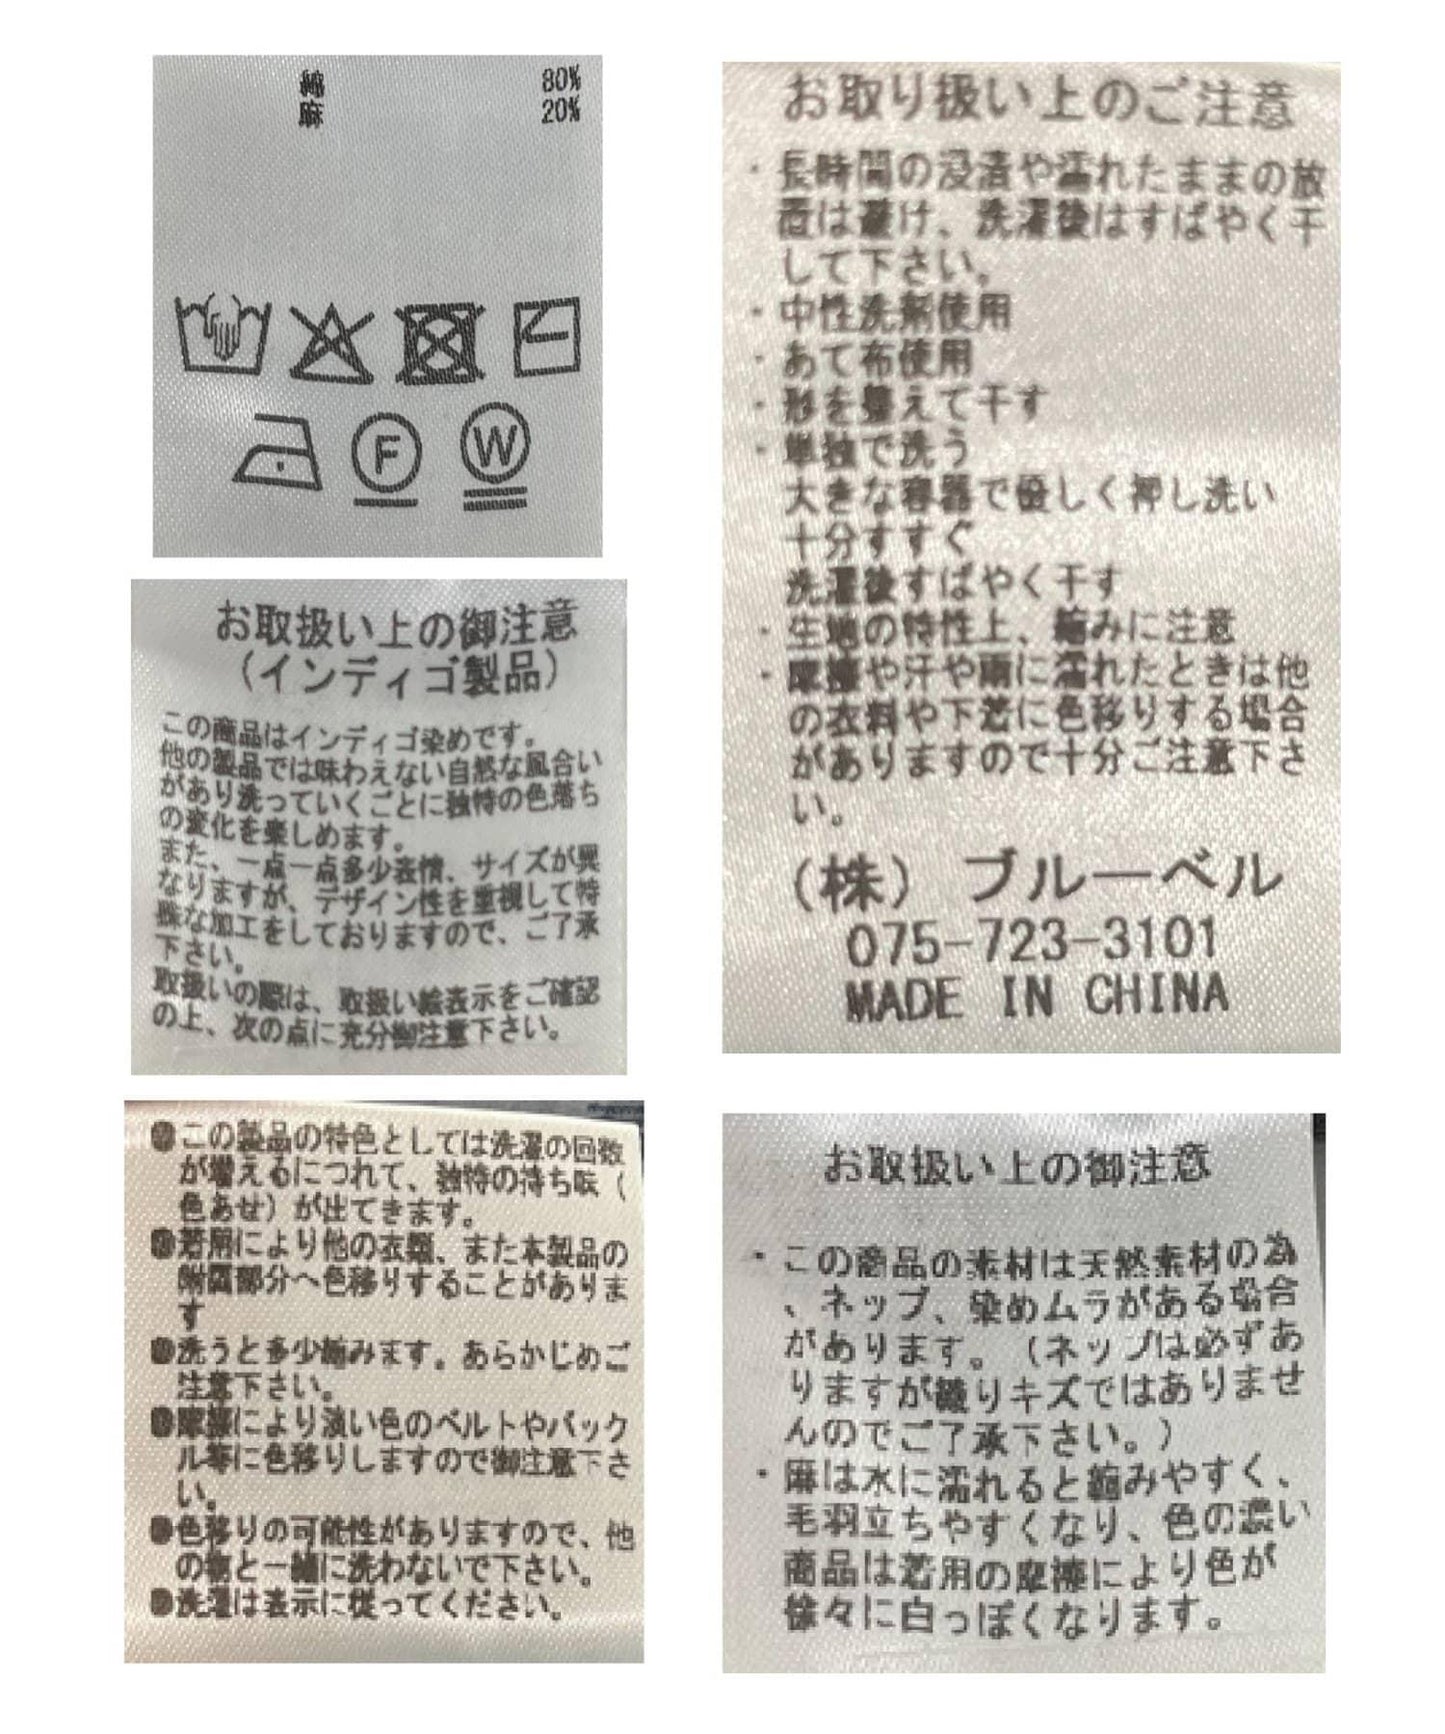 綿 80%
麻 20%
F
W
お取扱い上の御注意
(インディゴ製品)
この商品はインディゴ染めです。
他の製品では味わえない自然な風合い
があり洗っていくごとに独特の色落ち
の変化を楽しめます。
また、一点一点多少表情、サイズが異
なりますが、デザイン性を重視して特
殊な加工をしておりますので、ご了承
下さい。
取扱いの際は、取扱い絵表示をご確認
の上、次の点に充分御注意下さい。
●この製品の特色としては洗濯の回数
が増えるにつれて、独特の持ち味(
色あせ)が出てきます。
●着用により他の衣類、また本製品の
附属部分へ色移りすることがありま
す
●洗うと多少縮みます。あらかじめご
注意下さい。
●摩擦により淡い色のベルトやバック
ル等に色移りしますので御注意下さ
い。
●色移りの可能性がありますので、他
の物と一緒に洗わないで下さい。
●洗濯は表示に従ってください。
お取り扱い上のご注意
・長時間の浸漬や濡れたままの放
置は避け、洗濯後はすばやく干
して下さい。
・中性洗剤使用
・あて布使用
・形を整えて干す
・単独で洗う
大きな容器で優しく押し洗い
十分すすぐ
洗濯後すばやく干す
・生地の特性上、縮みに注意
・摩擦や汗や雨に濡れたときは他
の衣料や下着に色移りする場合
がありますので十分ご注意下さ
い。
(株) ブルーベル
075-723-3101
MADE IN CHINA
お取扱い上の御注意
・この商品の素材は天然素材の為
、ネップ、染めムラがある場合
があります。(ネップは必ずあ
りますが織りキズではありませ
んのでご了承下さい。)
・麻は水に濡れると縮みやすく、
毛羽立ちやすくなり、色の濃い
商品は着用の摩擦により色が
徐々に白っぽくなります。